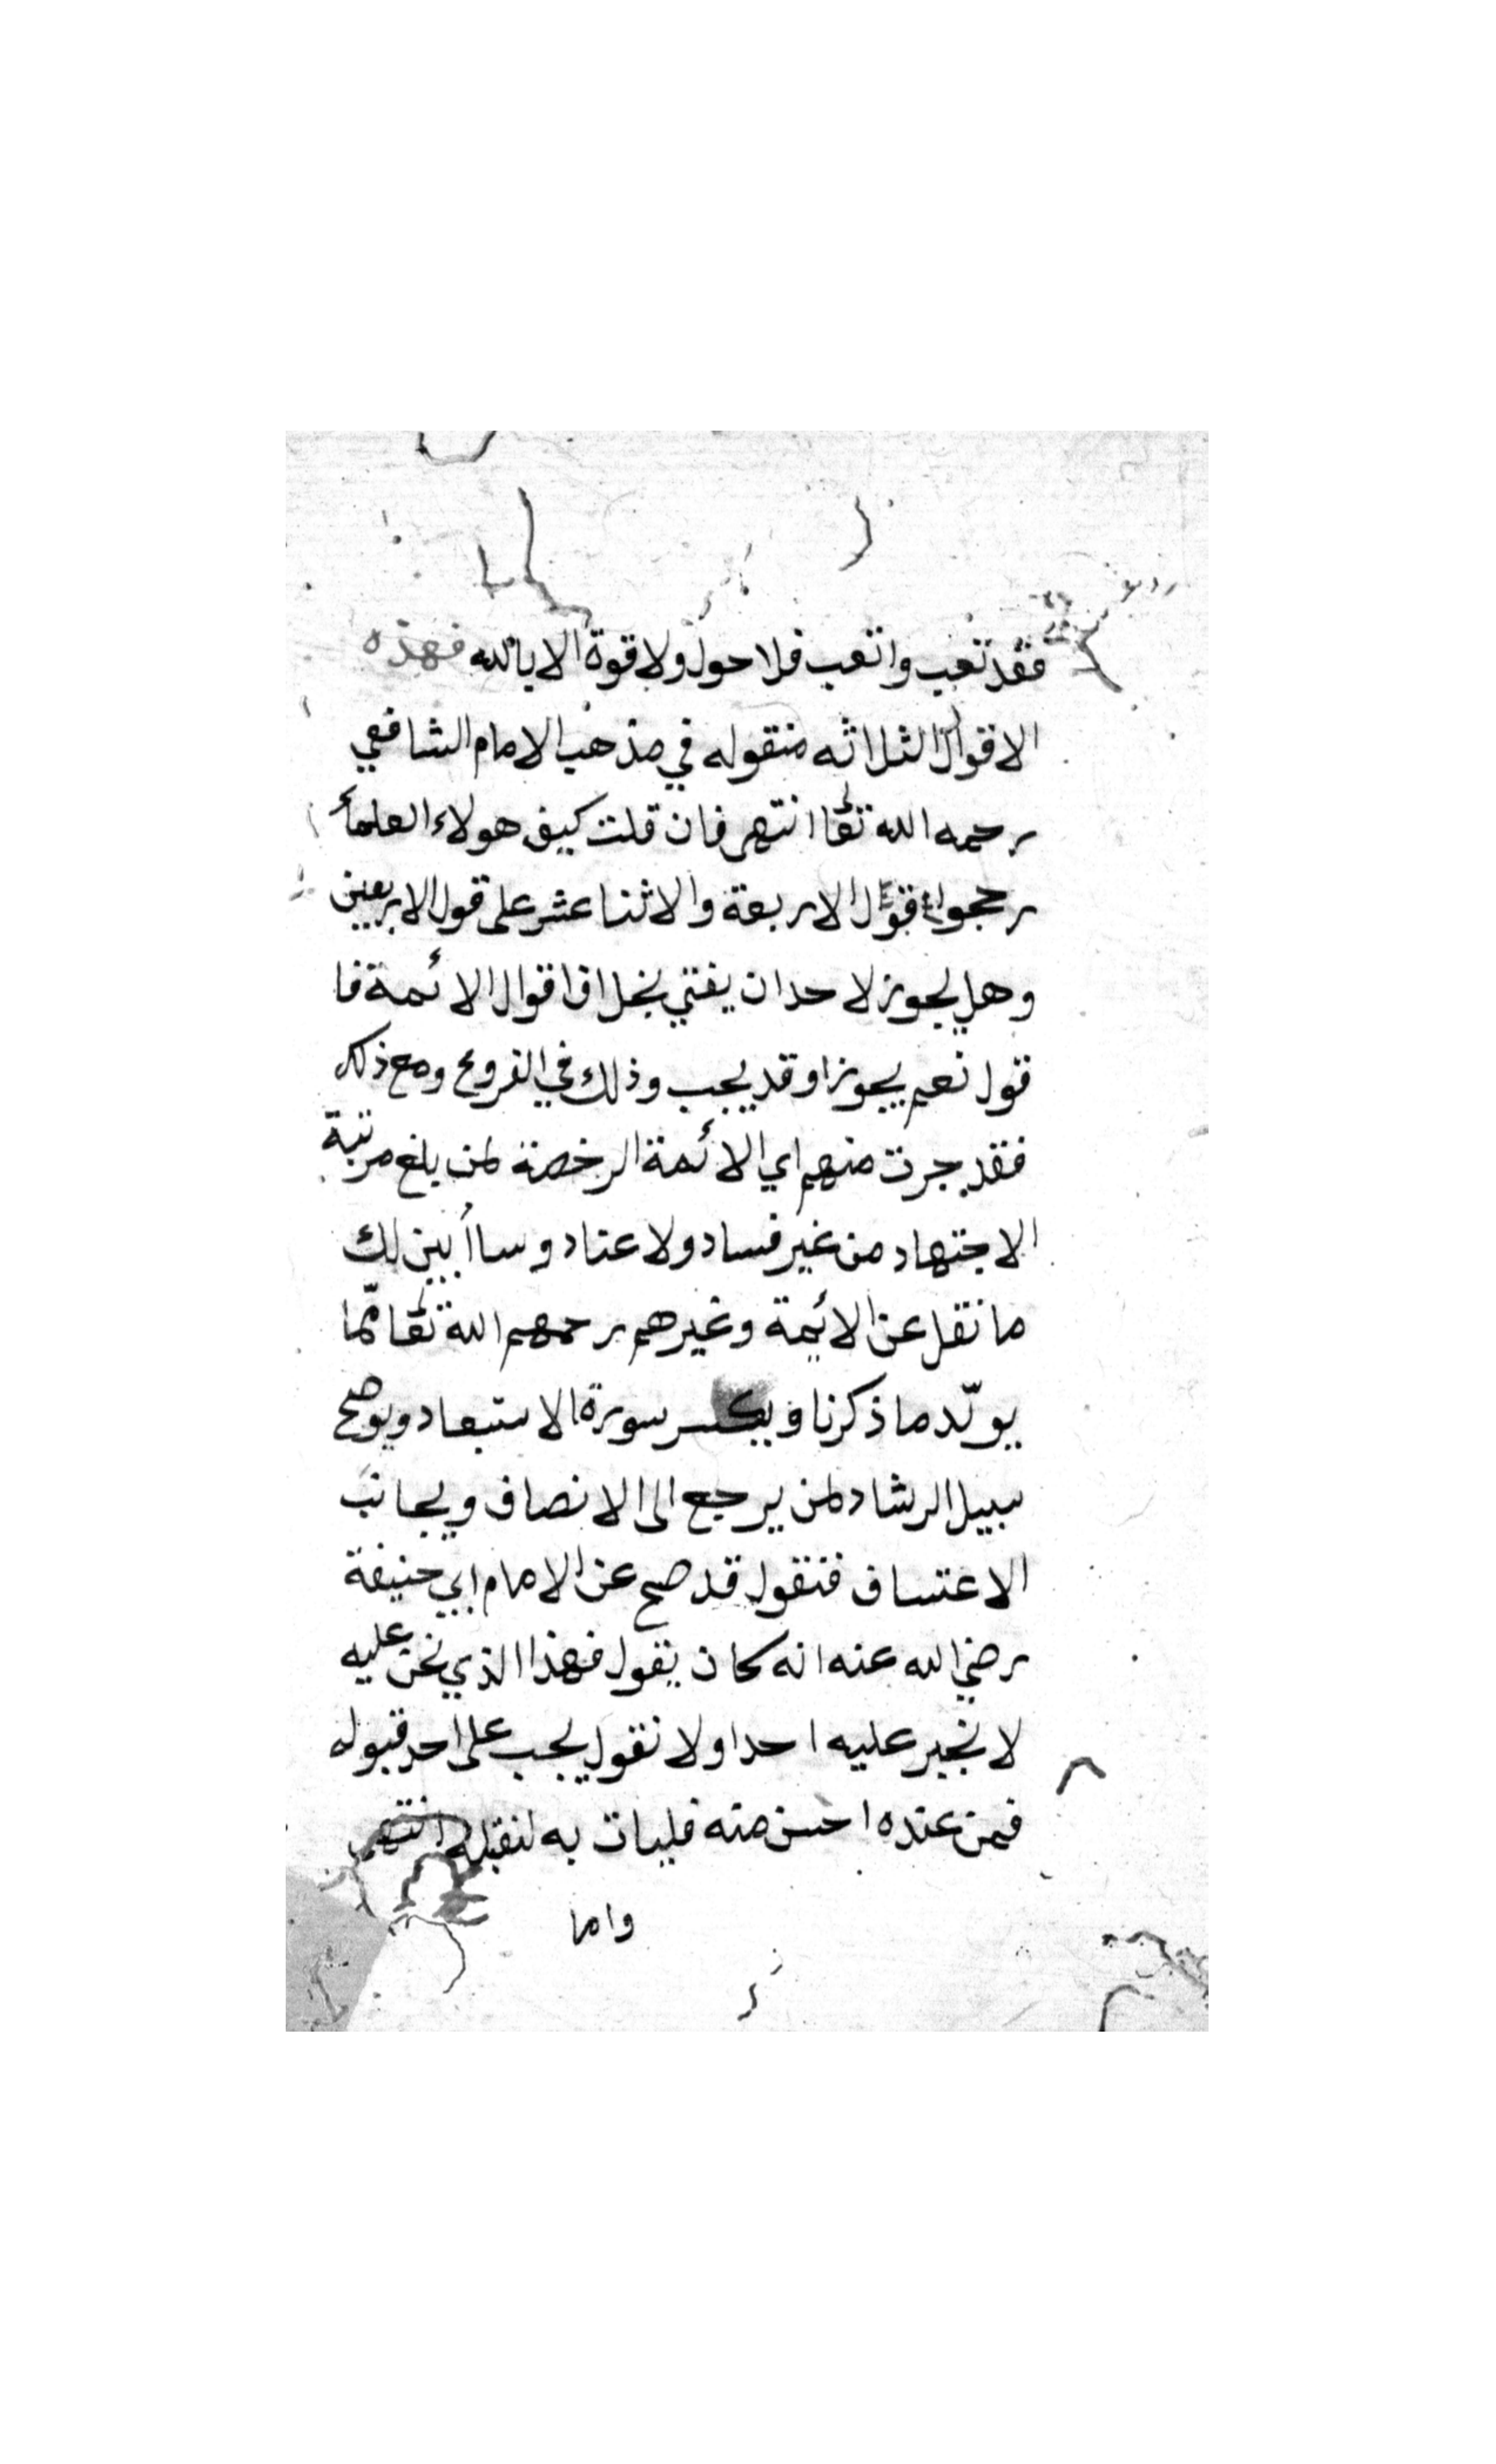 فقد تعب واتعب فلا حول ولا قوة الا بالله فهذه
الاقوال الثلاثه منقوله في مذهب الامام الشافعي
رحمه الله تعا انتهى فان قلت كيف هولاء العلمأ
رجحوا قول الاربعة والاثنا عشر على قول الاربعين
وهل يجوز لاحد ان يفتي بخلاف اقوال الائمة فا
قول نعم يجوز او قد يجب وذلك في الفروع ومع ذلك
فقد جرت منهم اي الائمة الرخصة لمن بلغ مرتبة
الاجتهاد من غير فساد ولا عناد وساأبين لك
ما نقل عن الائيمة وغيرهم رحمهم الله تعا ممّا
يويّد ما ذكرنا ويكسر سورة الاستبعاد ويوضح
سبيل الرشاد لمن يرجع الى الانصاف ويجانب
الاعتساف فنقول قد صح عن الامام ابي حنيفة
رضي الله عنه انه كان يقول فهذا الذي نحن عليه
لا نجبر عليه احدا ولا نقول يجب على احد قبوله
فمن عنده احسن منه فليات به لنقبله انتهى
واما